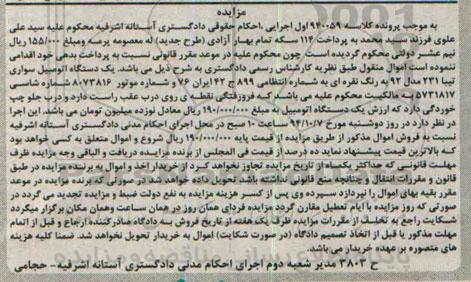 مزایده
به موجب پرونده کلاسه ۹۴۰۰۵۹ اول اجرایی، احکام حقوقی دادگستری آستانه اشرفیه محکوم علیه سید علی
علوی فرزند سید محمد به پرداخت ۱۱۴ سکه تمام بهار آزادی (طرح جدید) له معصومه پرسه ومبلغ ۱۵۵/۰۰۰ ریال
نیم عشر دولتی محکوم گردیده است چون محکوم علیه در موعد مقرر قانونی نسبت به پرداخت بدهی خود اقدامی
ننموده است اموال منقول طبق نظریه کارشناس رسمی دادگستری به شرح ذیل می باشد. یک دستگاه اتومبیل سواری
تیبا ۲۳۱ مدل ۹۲ به رنگ نقره ای به شماره انتظامی ۸۹۹ ج ۴۲ ایران ۷۶ و شماره موتور ۸۰۷۳۸۱۶ شماره شاسی
۵۷۳۱۸۱۷ به مالکیت محکوم علیه می باشد که فرورفتگی نقطه ی روی درب عقب راست دارد و درب جلو چپ
خوردگی دارد که ارزش یک دستگاه اتومبیل به مبلغ ۱۹۰/۰۰۰/۰۰۰ ریال معادل نوزده میلیون تومان می باشد. این اجرا
در نظر دارد در روز دوشنبه مورخ ۹۴/۱۰/۷ ساعت ۱۰ صبح در محل اجرای احکام مدنی دادگستری آستانه اشرفیه
نسبت به فروش اموال مذکور از طریق مزایده از قیمت پایه ۱۹۰/۰۰۰/۰۰۰ ریال شروع و اموال متعلق به کسی خواهد بود
که بالاترین قیمت پیشنهاد نماید ده درصد از قیمت فی المجلس از برنده مزایده دریافت و الباقی وجه مزایده ظرف
مهلت قانونی که حداکثر یکماه از تاریخ مزایده تجاوز نخواهد کرد از خریدار اخذ و اموال به برنده مزایده در طبق
قانون و مقررات انتقال و چنانچه منع قانونی نداشته باشد. تحویل داده خواهد شد. در صورتی که برنده مزایده در موعد
مقرر بقیه بهای اموال را نپردازد سپرده وی پس از کسر هزینه مزایده به نفع دولت ضبط و مزایده تجدید می گردد در
صورتی که روز مزایده با ایام تعطیل مقارن گردد مزایده فردای همان روز در همان ساعت وهمان مکان برگزار میگردد
شکایت راجع به تخلف از مقررات مزایده ظرف یک هفته از تاریخ فروش به دادگاه صادرکننده ارجاع و قبل از اتمام
مهلت مذکور یا قبل از اتخاذ تصمیم دادگاه (در صورت شکایت) اموال به خریدار تحویل نخواهد شد. ضمنا کلیه هزینه
های متصوره بر عهده خریدار می باشد.
ح ۳۸۰۳ مدیر شعبه دوم اجرای احکام مدنی دادگستری آستانه اشرفیه- حجامی